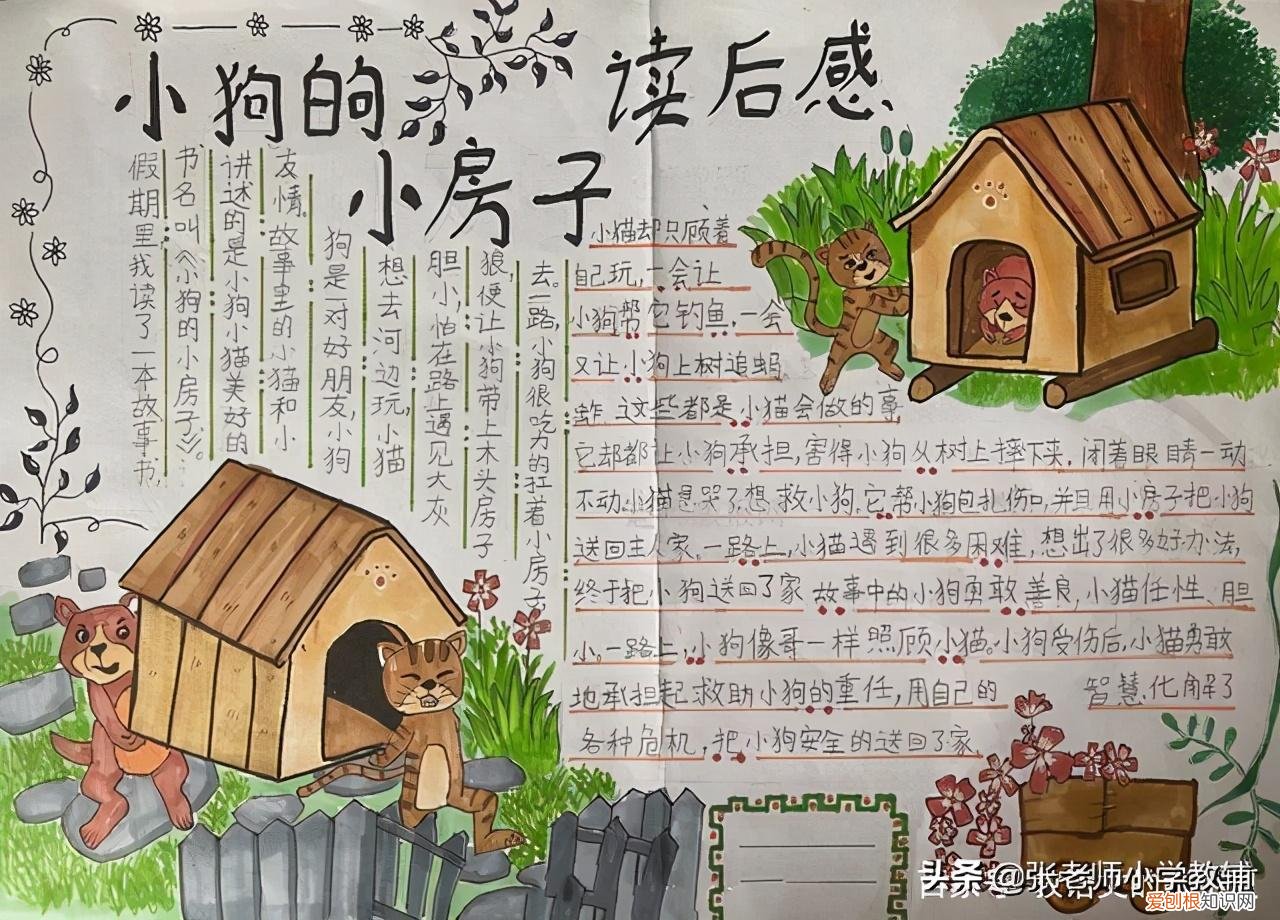 小狗的
小房子
读后感
假期里我读了一本故事书,
书名叫《小狗的小房子》。
讲述的是小狗小猫美好的
友情。故事里的小猫和小
狗是一对好朋友,小狗
想去河边玩,小猫
胆小,怕在路上遇见大灰
狼,便让小狗带上木头房子
去。一路,小狗很吃为的扛着小房子,
小猫却只顾着
自己玩,一会让
小狗帮它钓鱼,一会
又让小狗上树追蚂
蚱。这些都是小猫会做的事
它却都让小狗承担,害得小狗从树上摔下来,闭着眼睛一动
不动,小猫急哭了,想救小狗,它帮小狗包扎伤口,并且用小房子把小狗
送回主人家。一路上,小猫遇到很多困难,想出了很多好办法,
终于把小狗送回了家 故事中的小狗勇敢善良,小猫任性、胆
小。一路上,小狗像哥一样照顾小猫。小狗受伤后,小猫勇敢
地承担起救助小狗的重任,用自己的 智慧,化解了
各种危机,把小狗安全的送回了家。
头条 @张老师小学教辅
爱刨根知识网